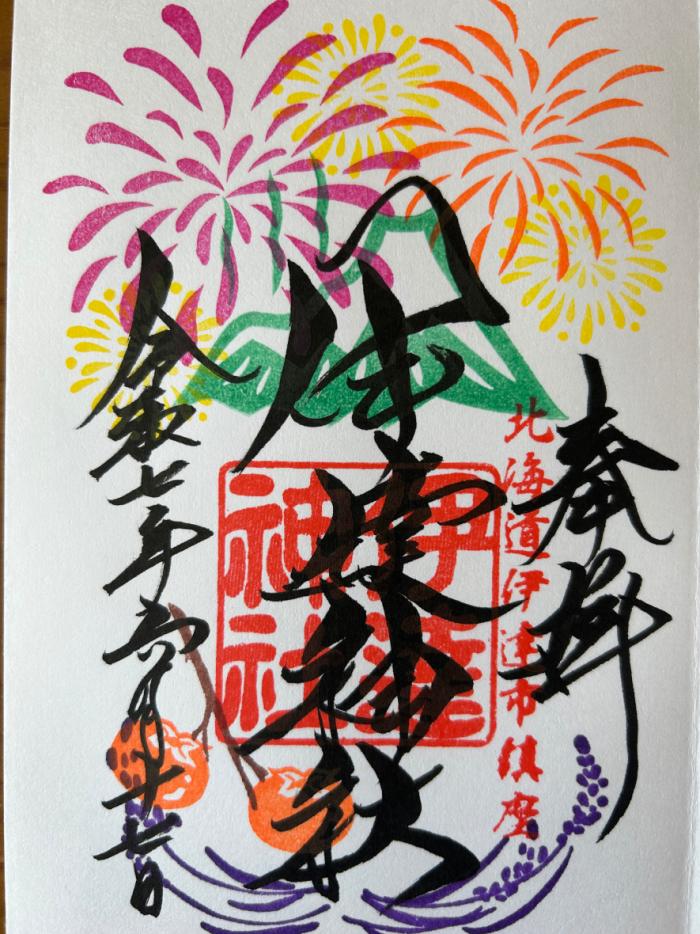 奉拝
北海道伊達市鎮座
伊達神社
伊達
神社
令和七年六月十七日